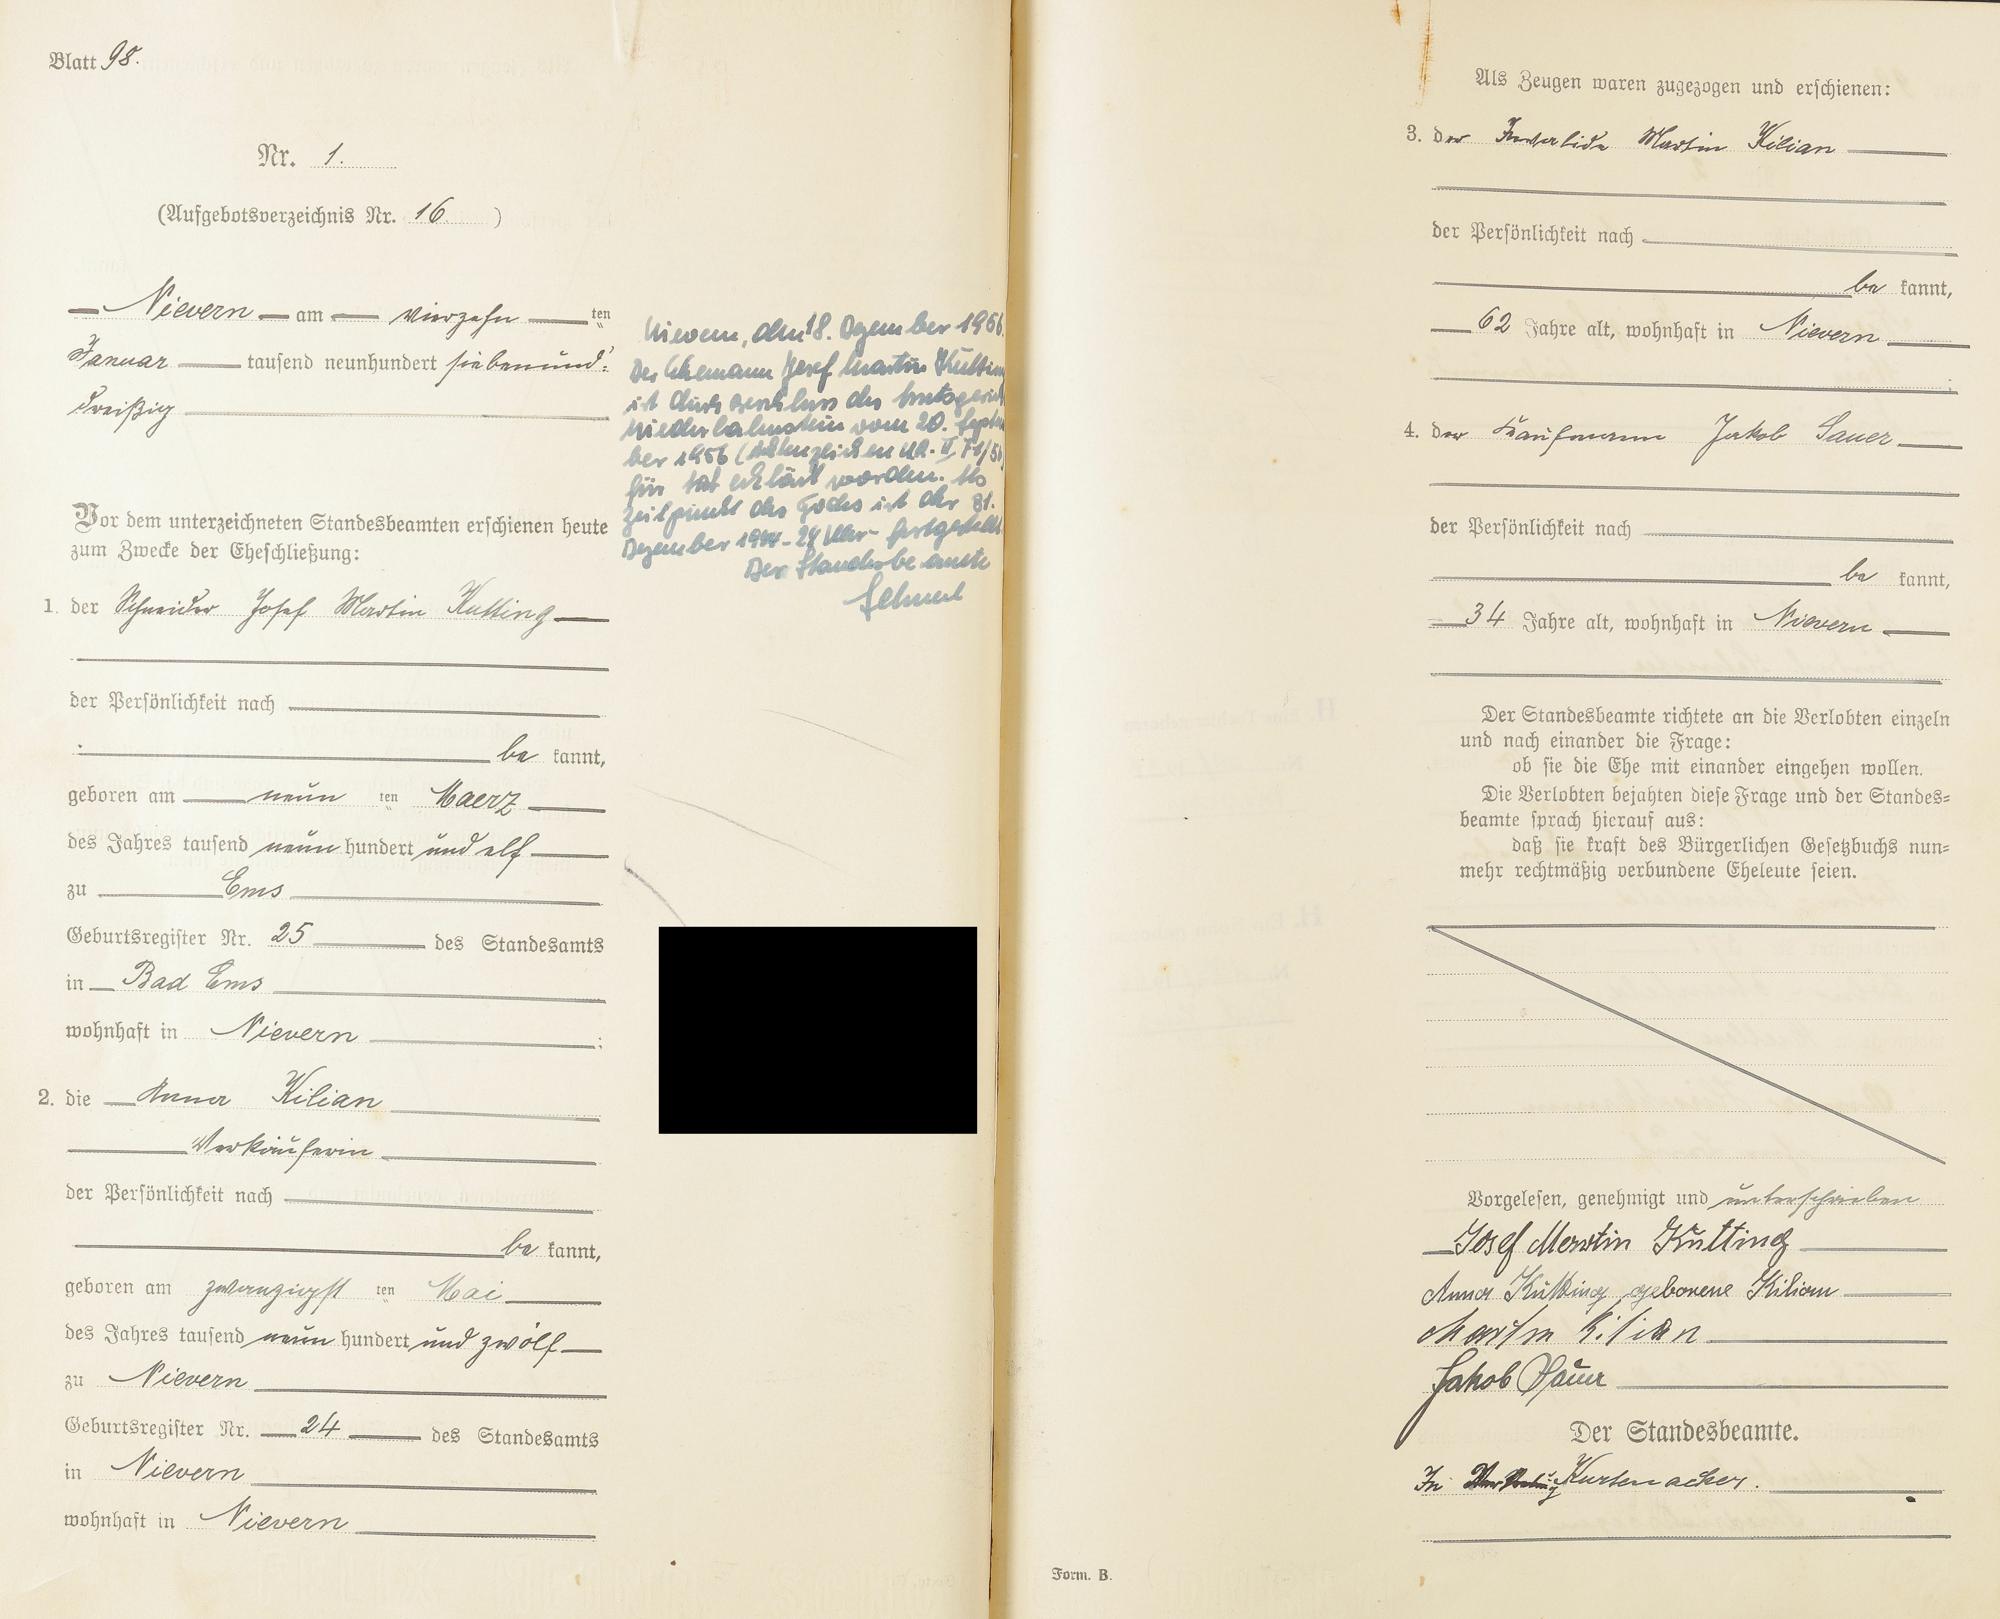 Blatt 98.
Nr. 1.
(Aufgebotsverzeichnis Nr. 16 )
Nievern am vierzehn ten
Januar tausend neunhundert siebenund-
dreißig
Vor dem unterzeichneten Standesbeamten erschienen heute
zum Zwecke der Eheschließung:
1. der Schneider Josef Martin Kutting
der Persönlichkeit nach
be kannt,
geboren am neun ten Maerz
des Jahres tausend neun hundert und elf
zu Ems
Geburtsregister Nr. 25 des Standesamts
in Bad Ems
wohnhaft in Nievern ;
2. die Anna Kilian
Verkäuferin
der Persönlichkeit nach
be kannt,
geboren am zwanzigst ten Mai
des Jahres tausend neun hundert und zwölf
zu Nievern
Geburtsregister Nr. 24 des Standesamts
in Nievern
wohnhaft in Nievern
Nievern, den 18. Dezember 1956.
Der Ehemann Josef Martin Kutting
ist durch Beschluss des Amtsgericht
Niederlahnstein vom 20. Septem
ber 1956 (Aktenzeichen UR. II 71/56)
für tot erklärt worden. Als
Zeitpunkt des Todes ist der 31.
Dezember 1944 - 24 Uhr - festgestellt.
Der Standesbeamte
Als Zeugen waren zugezogen und erschienen:
3. der Invalide Martin Kilian
der Persönlichkeit nach
be kannt,
62 Jahre alt, wohnhaft in Nievern
;
4. der Kaufmann Jakob Sauer
der Persönlichkeit nach
be kannt,
34 Jahre alt, wohnhaft in Nievern
Der Standesbeamte richtete an die Verlobten einzeln
und nach einander die Frage:
ob sie die Ehe mit einander eingehen wollen.
Die Verlobten bejahten diese Frage und der Standes-
beamte sprach hierauf aus:
daß sie kraft des Bürgerlichen Gesetzbuchs nun-
mehr rechtmäßig verbundene Eheleute seien.
Vorgelesen, genehmigt und unterschrieben
Josef Martin Kutting
Anna Kutting geborene Kilian
Martin Kilian
Jakob Sauer
Der Standesbeamte.
In Vertretung Kurtenacker.
Form. B.